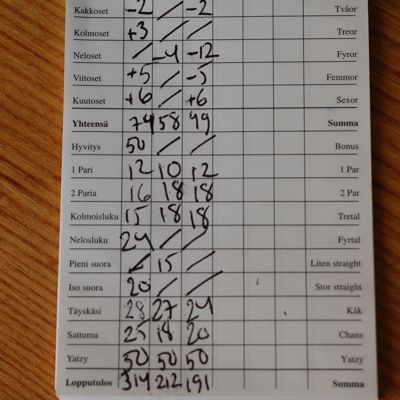 Kakkoset -2 / -2 Tvåor
Kolmoset +3 / Treor
Neloset / -4 -12 Fyror
Viitoset +5 / -5 Femmor
Kuutoset +6 / +6 Sexor
Yhteensä 74 58 49 Summa
Hyvitys 50 / / Bonus
1 Pari 12 10 12 1 Par
2 Paria 16 18 18 2 Par
Kolmoisluku 15 18 18 Tretal
Nelosluku 24 / / Fyrtal
Pieni suora / 15 / Liten straight
Iso suora 20 / / Stor straight
Täyskäsi 28 27 24 Kåk
Sattuma 25 18 20 Chans
Yatzy 50 50 50 Yatzy
Lopputulos 314 212 191 Summa